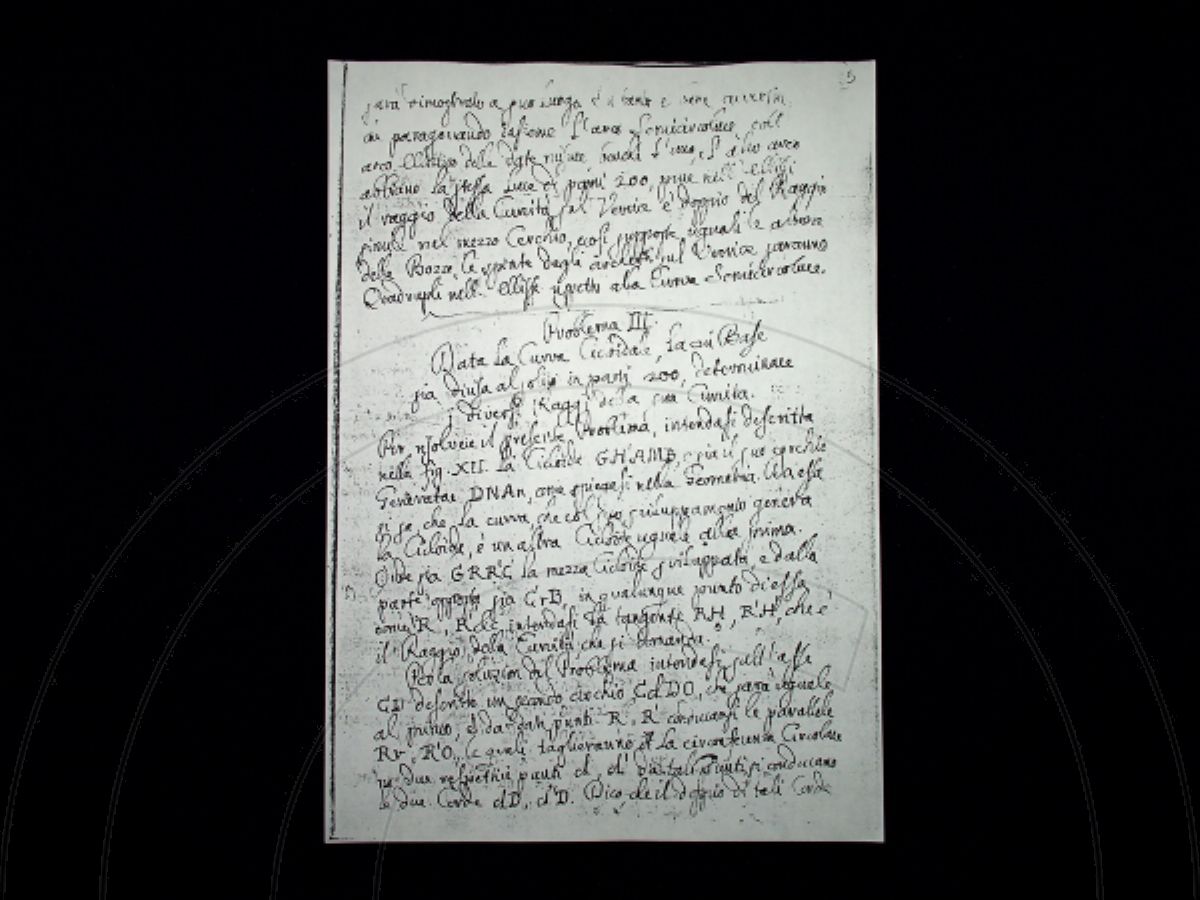 5
sarà dimostrato a suo luogo
paragonando insieme l'arco Semicircolare coll'
arco Ellittico delle
abbiano la stessa Luce di parti 200, pure nell'Ellissi
il raggio della Curvità sul Vertice è doppio del Raggio
simile nel mezzo Cerchio, così supposte uguali le altezze
delle spinte degli archetti sul Vertice saranno
Quadruple nell' Ellisse rispetto alla Curva Semicircolare.
Problema III.
Data la Curva Cicloidale, la cui Base
sia divisa al solito in parti 200, determinare
i diversi Raggi della sua Curvità.
Per risolvere il presente Problema, intendasi descritta
nella fig. XII. la Cicloide GHAMB, e sia il suo cerchio
Generatore DNAn, come spiegasi nella Geometria. Da essa
si sa, che la curva, che col suo sviluppamento genera
la Cicloide, è un altra Cicloide uguale alla prima.
Onde sia GRR'C la mezza Cicloide sviluppata, e dalla
parte opposta sia CrB, in qualunque punto di essa
come R, R' &c. intendasi la tangente RH, R'H', che è
il Raggio della Curvità che si domanda.
Per la soluzion del Problema intendasi sull'asse
CD descritto un secondo cerchio CdDO, che sarà uguale
al primo, e da dati punti R, R' conducansi le parallele
Rr, R'O, le quali taglieranno la circonferenza Circolare
ne due respettivi punti d, d' da tali punti si conducano
le due Corde dD, d'D. Dico che il doppio di tali Corde